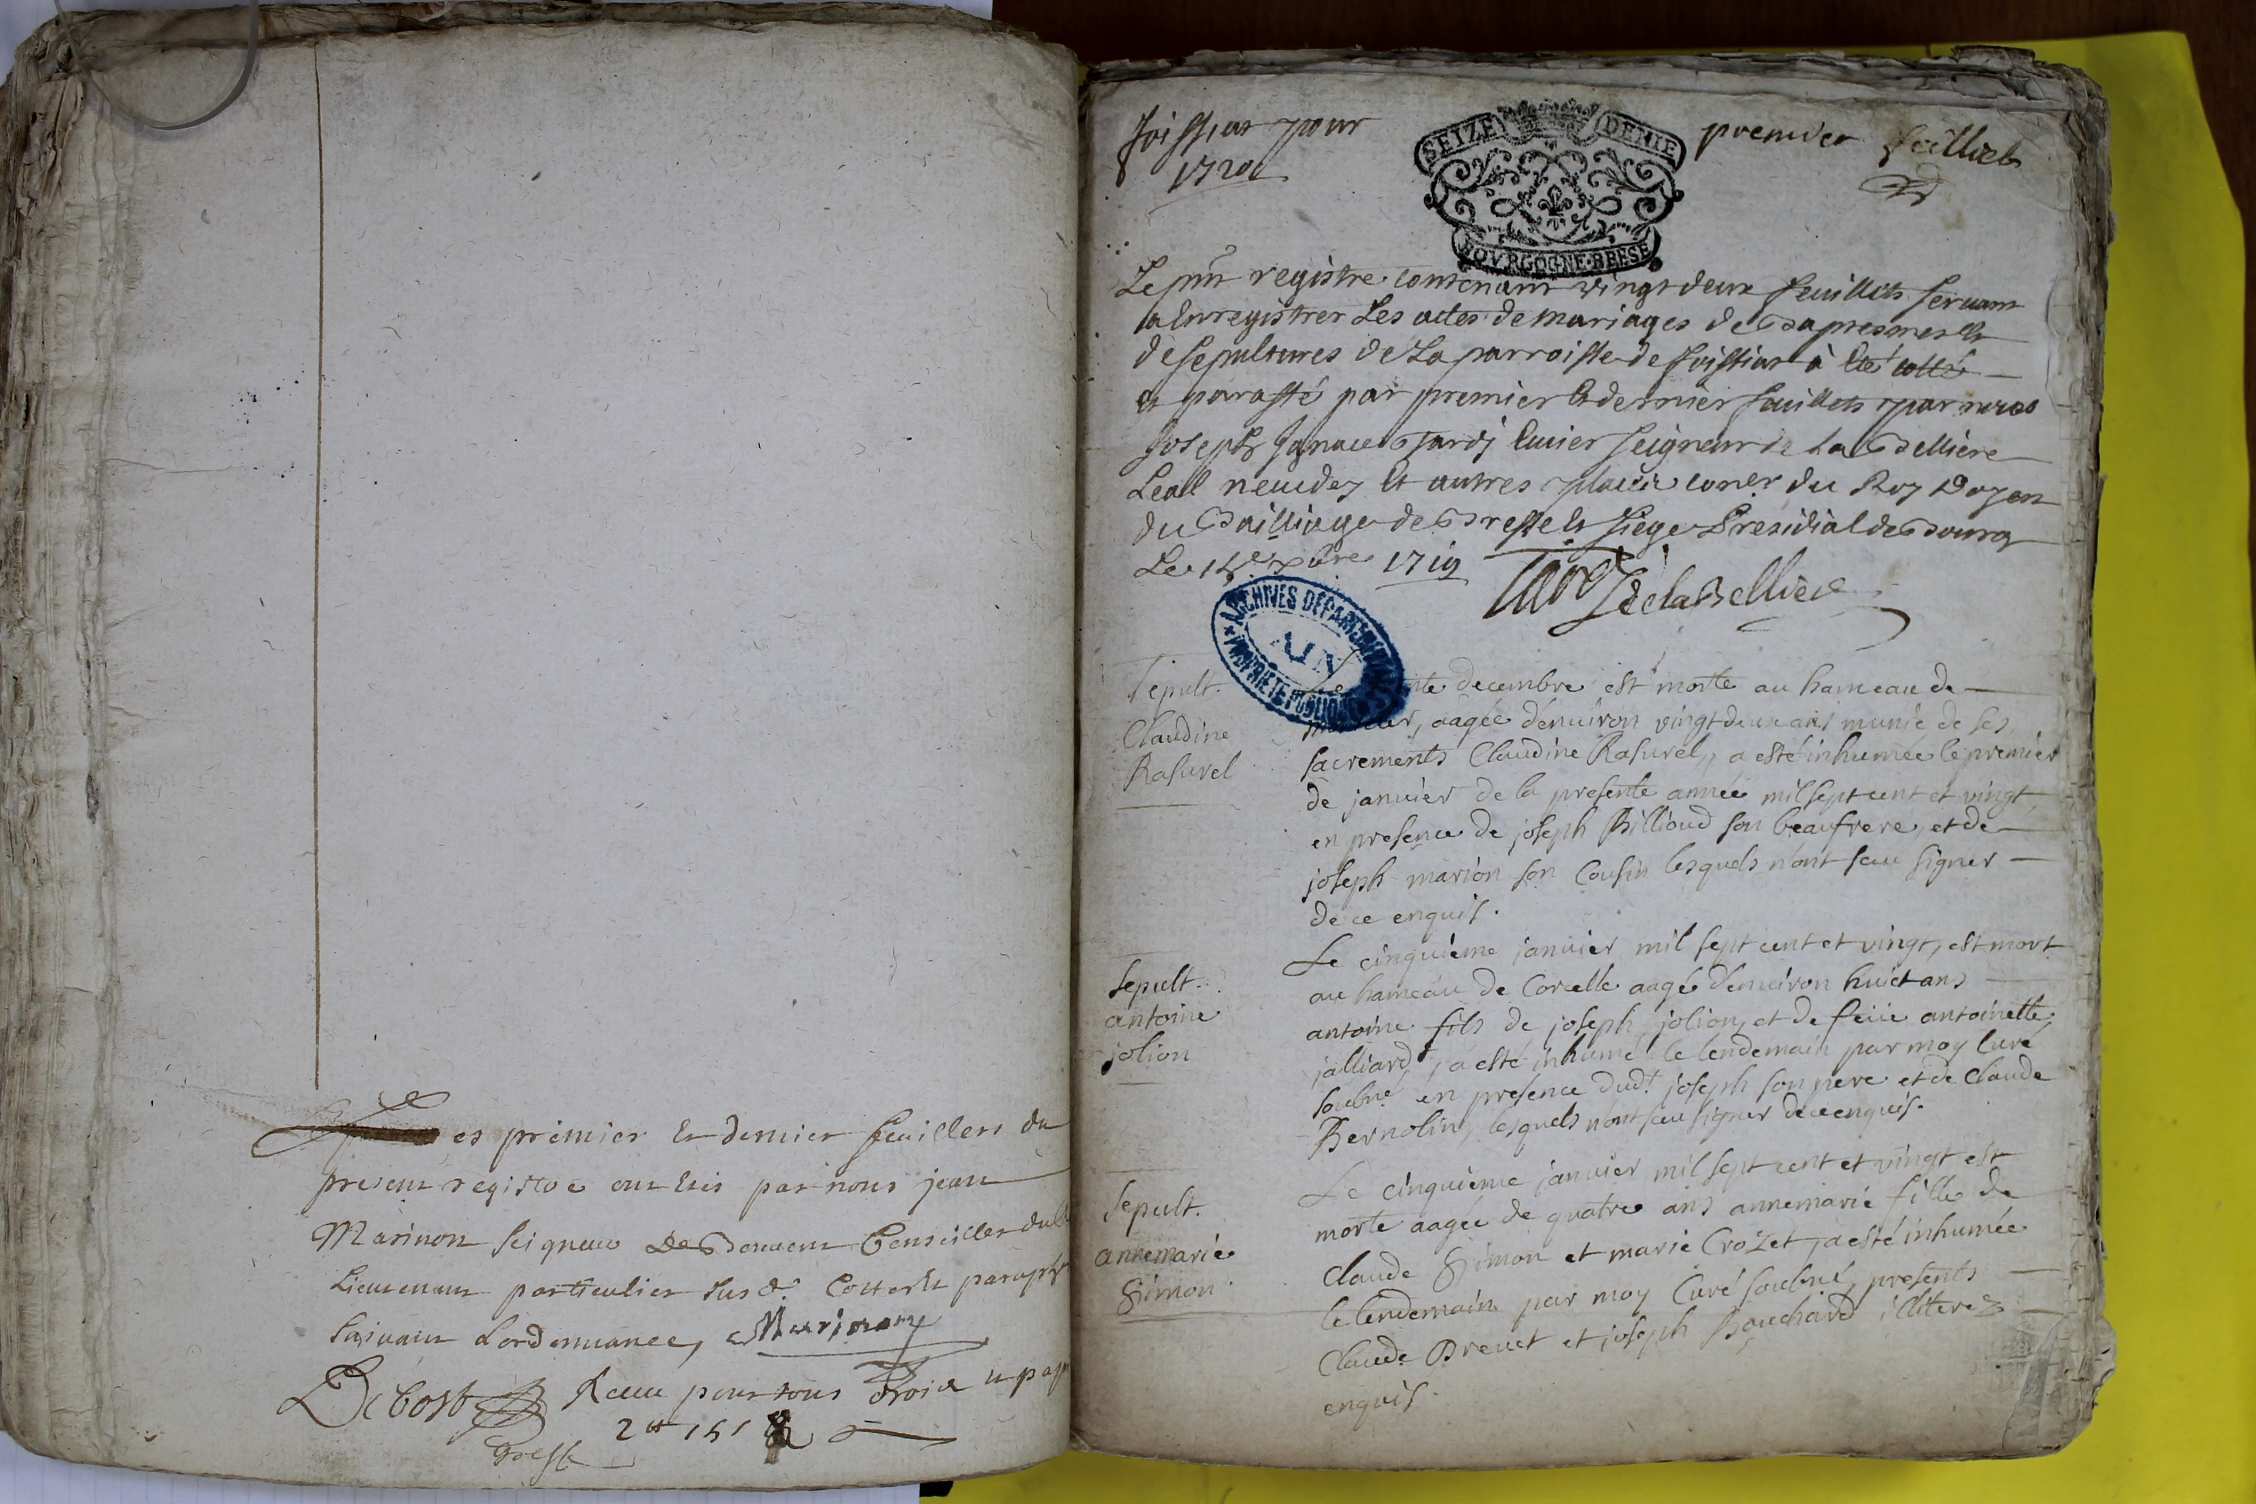 es premier et dernier feuillets du
present registre ont estés par nous jean
Marinon seigneur De Conseiller du
Lieutenant particulier susd. Cotter et paraphé
suivant L'ordonnance, Marinon
Debost Receu pour tous Drois u pap
2 tt 15 s
Greff
foissiat pour
1720
premier feuillet
SEIZE DENIE
BOVRGOGNE·BRESE
Le pnt registre contenant vingt deux feuillets servant
a Enregistrer Les actes de mariages de Baptesmes et
de sepultures de La parroisse de foissiat à Eté cotté
et paraffé par premier et dernier feuillets par nous
Joseph Ignace Tardy Ecuier seigneur de La Belliere
Leal neuvdey et autres places coner du Roy Doyen
du Bailliage de Bresse et siege Presidial de Bourg
Le xbre 1719
Tardy de la Belliere
ARCHIVES DÉPARTEMENTALES
AIN
PROPRIÉTÉ PUBLIQUE
Sepult.
Claudine
Rasurel
Le decembre est morte au hameau de
aagée d'enuiron vingt deux ans munie de ses
sacrements Claudine Rasurel, a esté inhumée le premier
de januier de la presente année mil sept cent et vingt,
en presence de joseph Billioud son beaufrere, et de
joseph marion son Cousin lesquels n'ont sceu signer
de ce enquis.
Sepult.
antoine
jolion
Le cinquième januier mil sept cent et vingt, est mort
au hameau de Corcelle aagé d'enuiron huict ans
antoine fils de joseph jolion, et de feüe antoinette
jalliard, a esté inhumé le lendemain par moy Curé
soubné en presence dudt. joseph son pere et de Claude
Bernolin, lesquels n'ont sceu signer de ce enquis.
Sepult.
annemarie
Simon
Le cinquieme januier mil sept cent et vingt est
morte aagée de quatre ans annemarie fille de
Claude Simon et marie Crozet, a esté inhumée
le lendemain par moy Curé soubné, presents
Claude Breuet et joseph Bouchard illiterez
enquis.